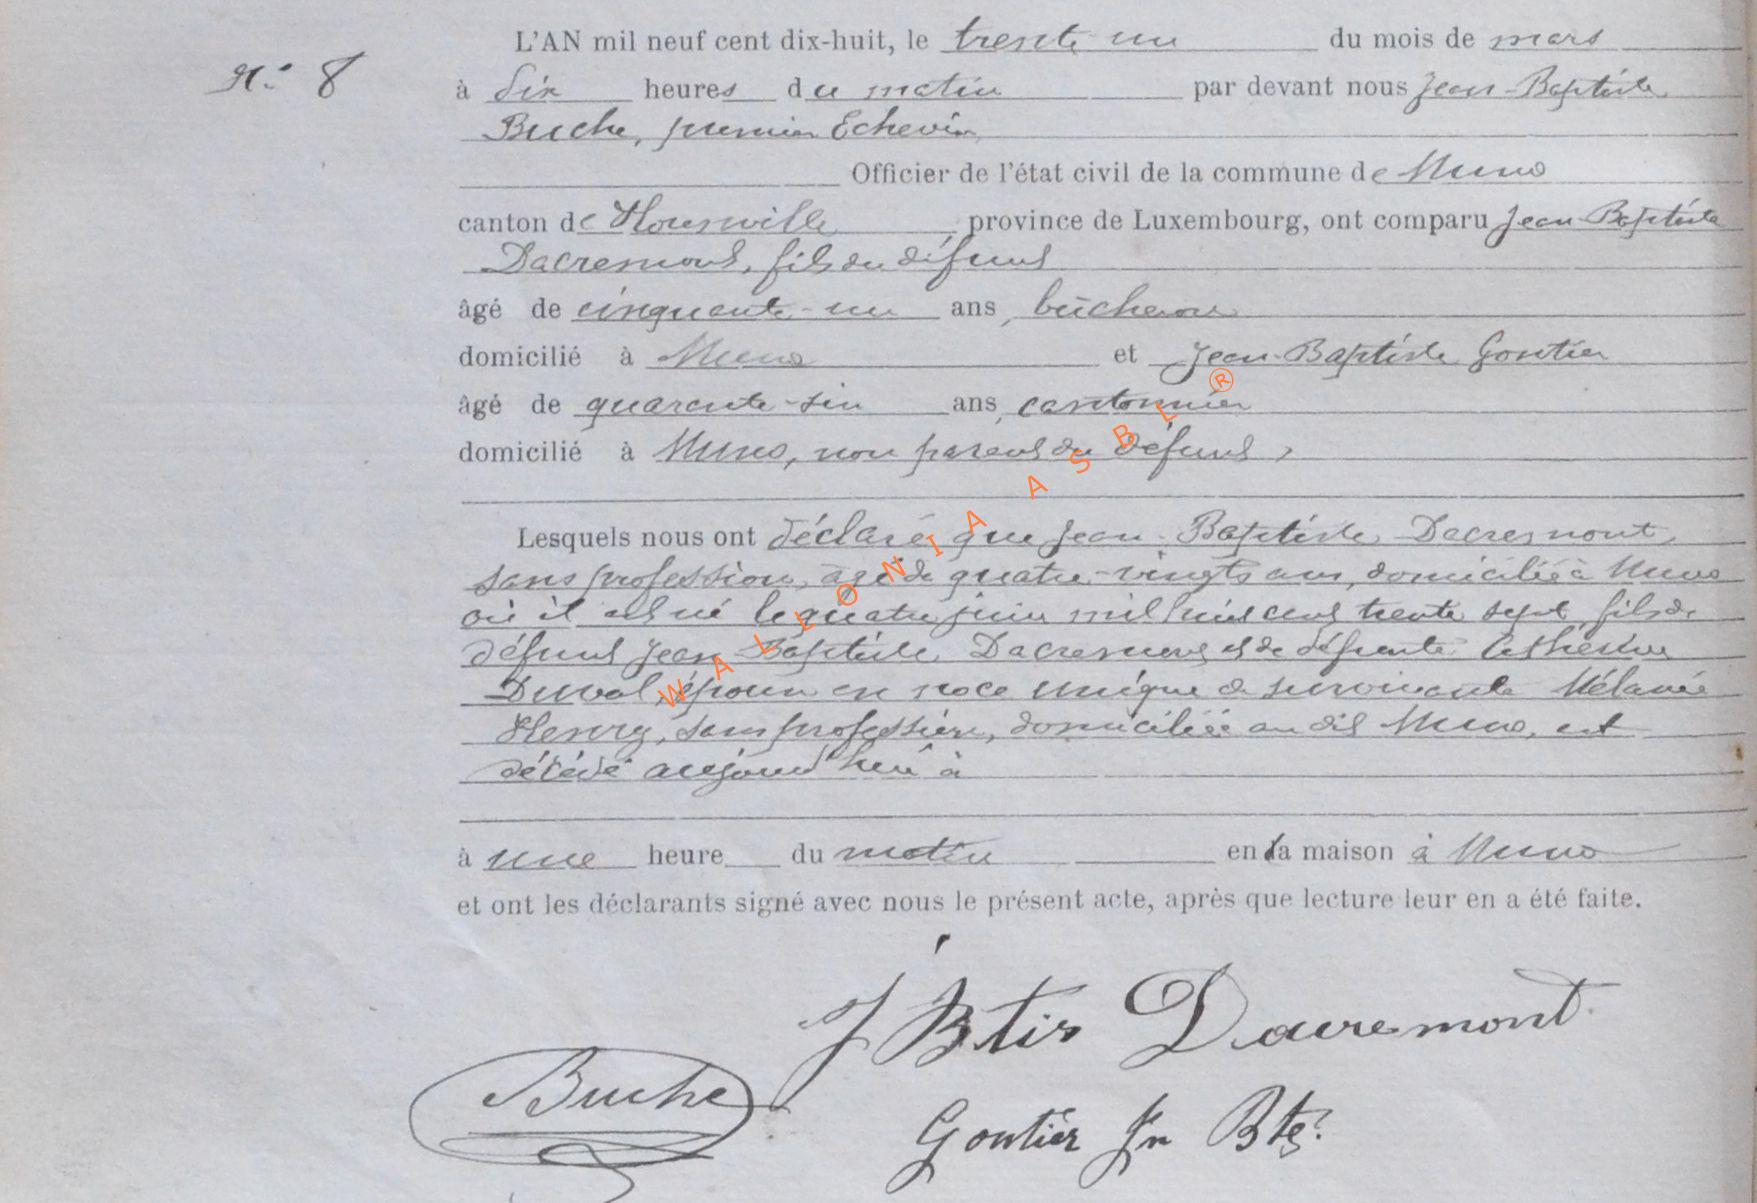 L'AN mil neuf cent dix-huit, le trente un du mois de mars
N° 8
à dix heures du matin par devant nous Jean-Baptiste
Buche, premier Echevin
Officier de l'état civil de la commune de Muno
canton de Florenville, province de Luxembourg, ont comparu Jean-Baptiste
Dacremont, fils du défunt
âgé de cinquante-un ans, bûcheron
domicilié à Muno et Jean-Baptiste Gontier
âgé de quarante-six ans, cantonnier
domicilié à Muno, non parent du défunt,
Lesquels nous ont déclaré que Jean-Baptiste Dacremont,
sans profession, âgé de quatre-vingts ans, domicilié à Muno
où il est né le quatre juin mil huit cent trente sept, fils de
défunt Jean Baptiste Dacremont et de défunte Cathérine
Duval, époux en noce unique de survivante Mélanie
Henry, sans profession, domiciliée au dit Muno, est
décédé aujourd'hui à
à une heure du matin en sa maison à Muno
et ont les déclarants signé avec nous le présent acte, après que lecture leur en a été faite.
J Btis Dacremont
Buche
Gontier Jn Bte.
WALLONIA ASBL ®